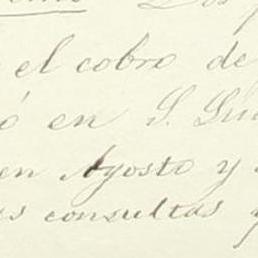 el cobro de
ó en S. Lu
en Agosto y
s consultas y